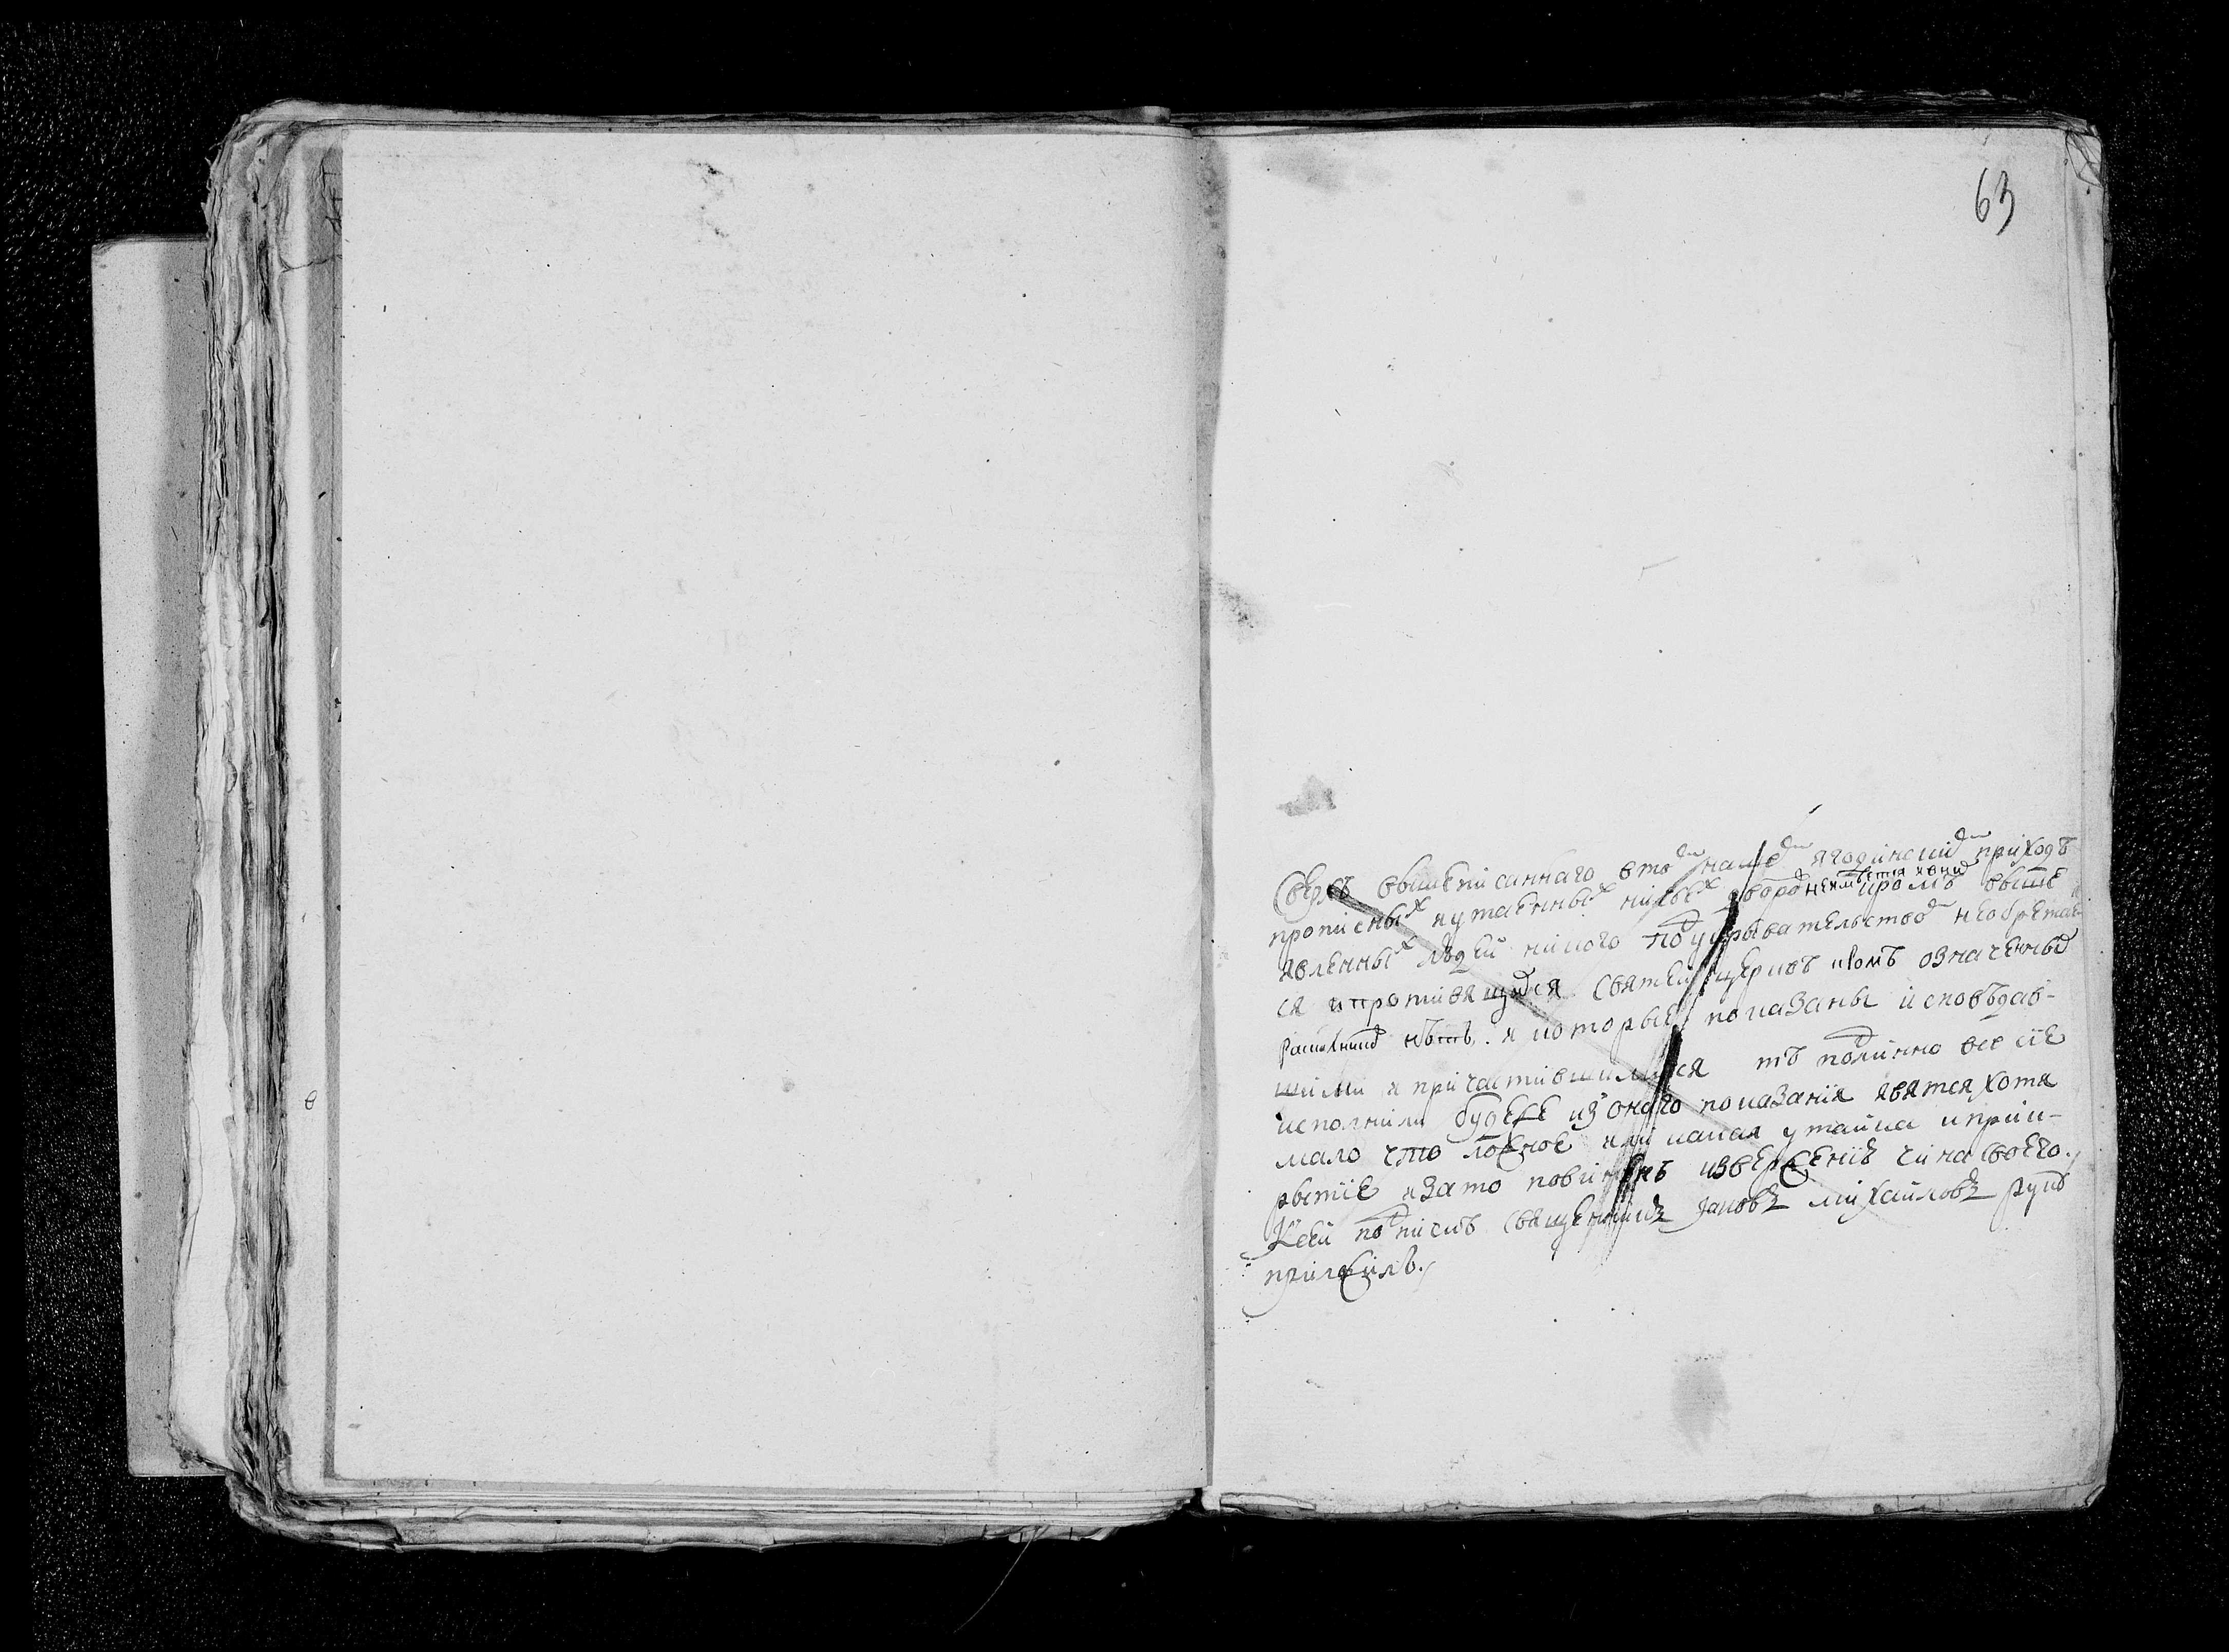 63
Сверхъ вышеписаннаго в томъ нашемъ ягодинскомъ приходѣ
прописныхъ и утаенныхъ ни въ чьихъ дворѣ не имѣется и они кромѣ выше
явленныхъ людей никого под укрывательством не обретает
ся и противящихся святей церкви кромѣ означенныхъ
раскольниковъ нѣтъ. а которые показаны исповѣдав-
шими и причастившимися тѣ подлинно все сие
исполнили будеже из онаго показания явятся хотя
мало что ложное или какая утайка и прик-
рытие и за то повиненъ извержению чина своего.
К сей подписке священникъ Яковъ Михайловъ руку
приложилъ.
в